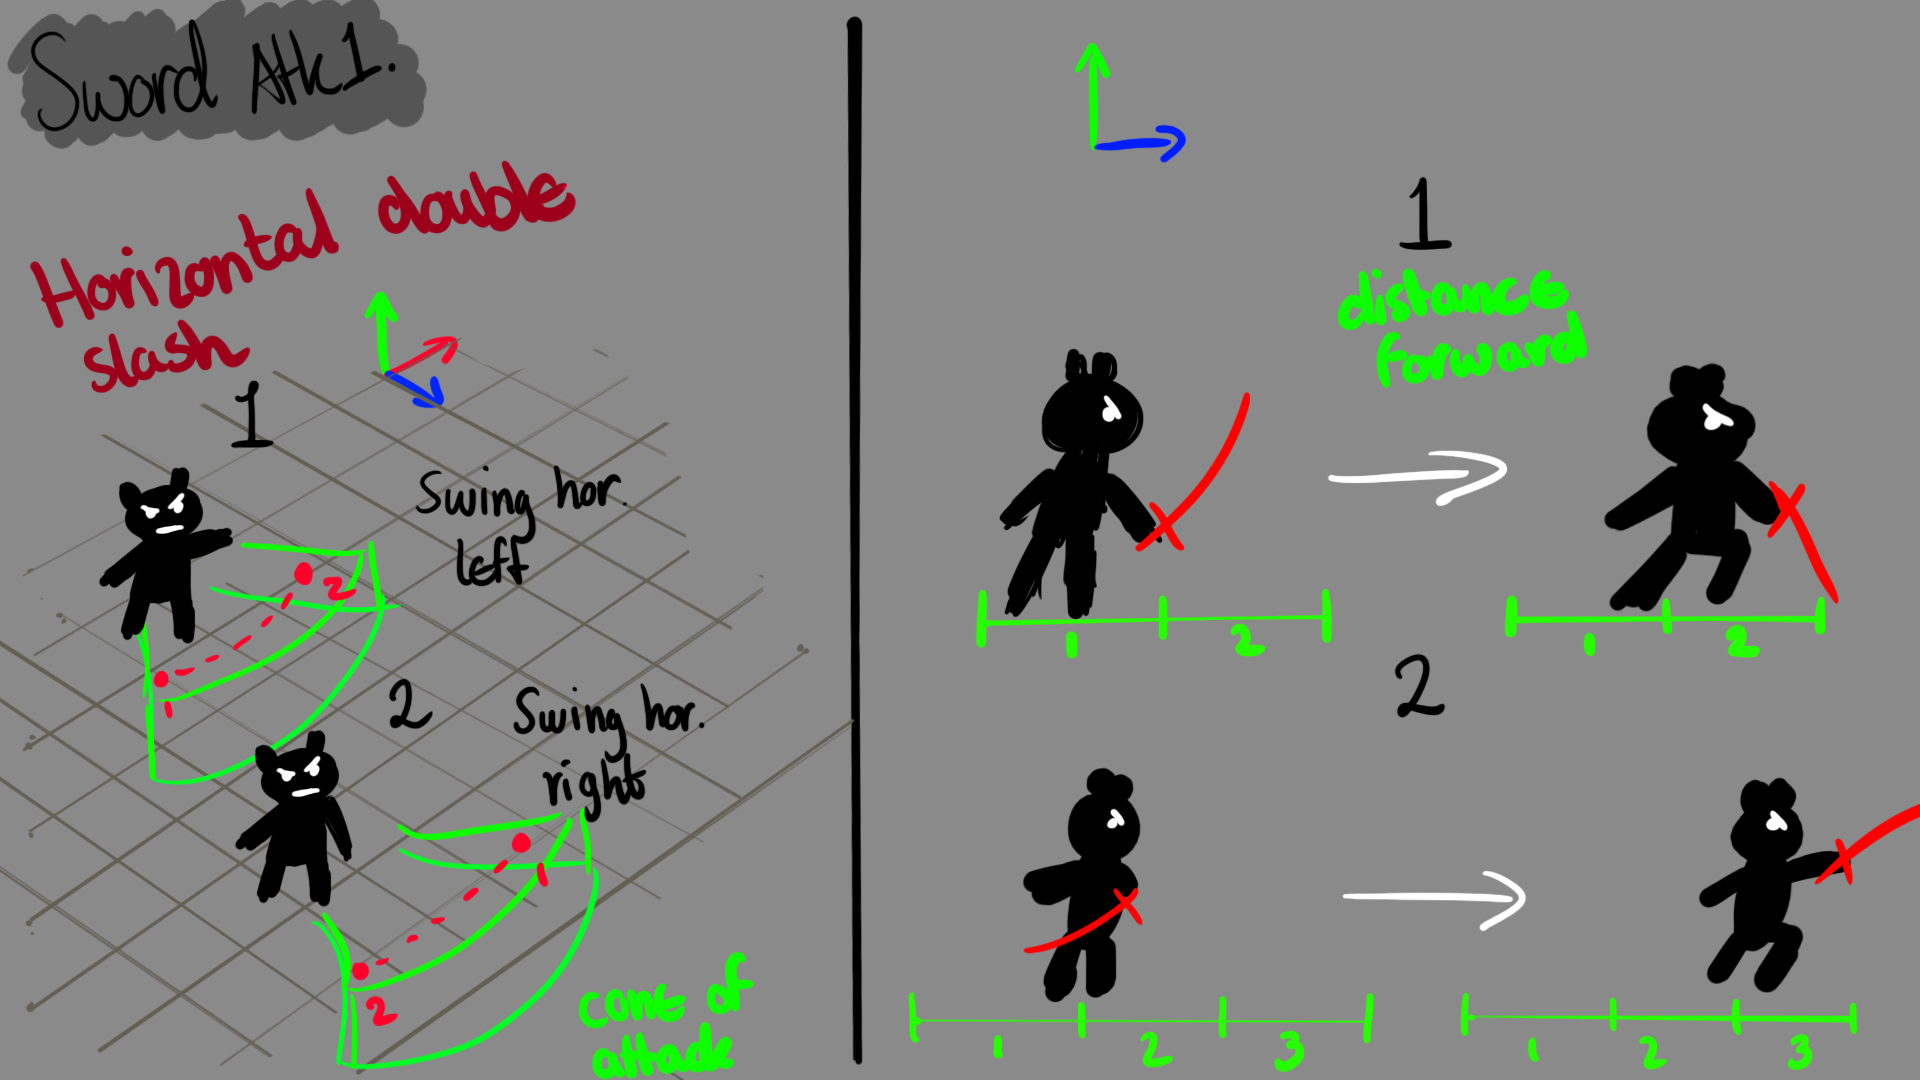 Sword Atk 1.
Horizontal double
slash
1
Swing hor.
left
2
1
2
Swing hor.
right
1
2
cone of
attack
1
distance
forward
1 2
1 2
2
1 2 3
1 2 3